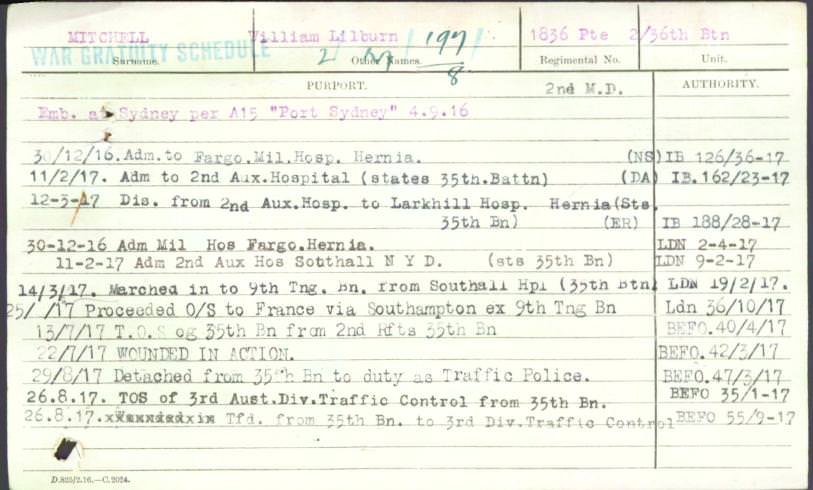 MITCHELL William Lilburn 1836 Pte 2/36th Btn
WAR GRATUITY SCHEDULE 2 M 197/8
Surname. Other Names. Regimental No. Unit.
PURPORT. 2nd M.D. AUTHORITY.
Emb. at Sydney per A15 "Port Sydney" 4.9.16
30/12/16. Adm. to Fargo. Mil. Hosp. Hernia. (NS) IB 126/36-17
11/2/17. Adm to 2nd Aux. Hospital (states 35th. Battn) (DA) IB. 162/23-17
12-3-17 Dis. from 2nd Aux. Hosp. to Larkhill Hosp. Hernia (Sts.
35th Bn) (ER) IB 188/28-17
30-12-16 Adm Mil Hos Fargo. Hernia. LDN 2-4-17
11-2-17 Adm 2nd Aux Hos Sotthall N Y D. (sts 35th Bn) LDN 9-2-17
14/3/17. Marched in to 9th Tng. Bn. from Southall Hpl (35th Btn) LDN 19/2/17.
25/ /17 Proceeded O/S to France via Southampton ex 9th Tng Bn Ldn 36/10/17
13/7/17 T.O.S og 35th Bn from 2nd Rfts 35th Bn BEFO. 40/4/17
22/7/17 WOUNDED IN ACTION. BEFO. 42/3/17
29/8/17 Detached from 35th Bn to duty as Traffic Police. BEFO. 47/3/17
26.8.17. TOS of 3rd Aust. Div. Traffic Control from 35th Bn. BEFO 35/1-17
26.8.17. Tfd. from 35th Bn. to 3rd Div. Traffic Control BEFO 55/9-17
D.825/2.16.—C.2024.